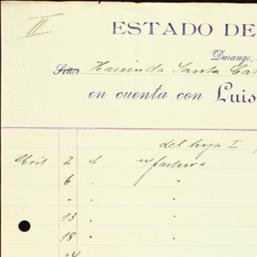 II
ESTADO DE
Durango,
Señor Hacienda Santa Cat
en cuenta con Luis
del hoja I
Abril 2 s/ n/factura
6 " "
" "
13 " "
18 " "
24